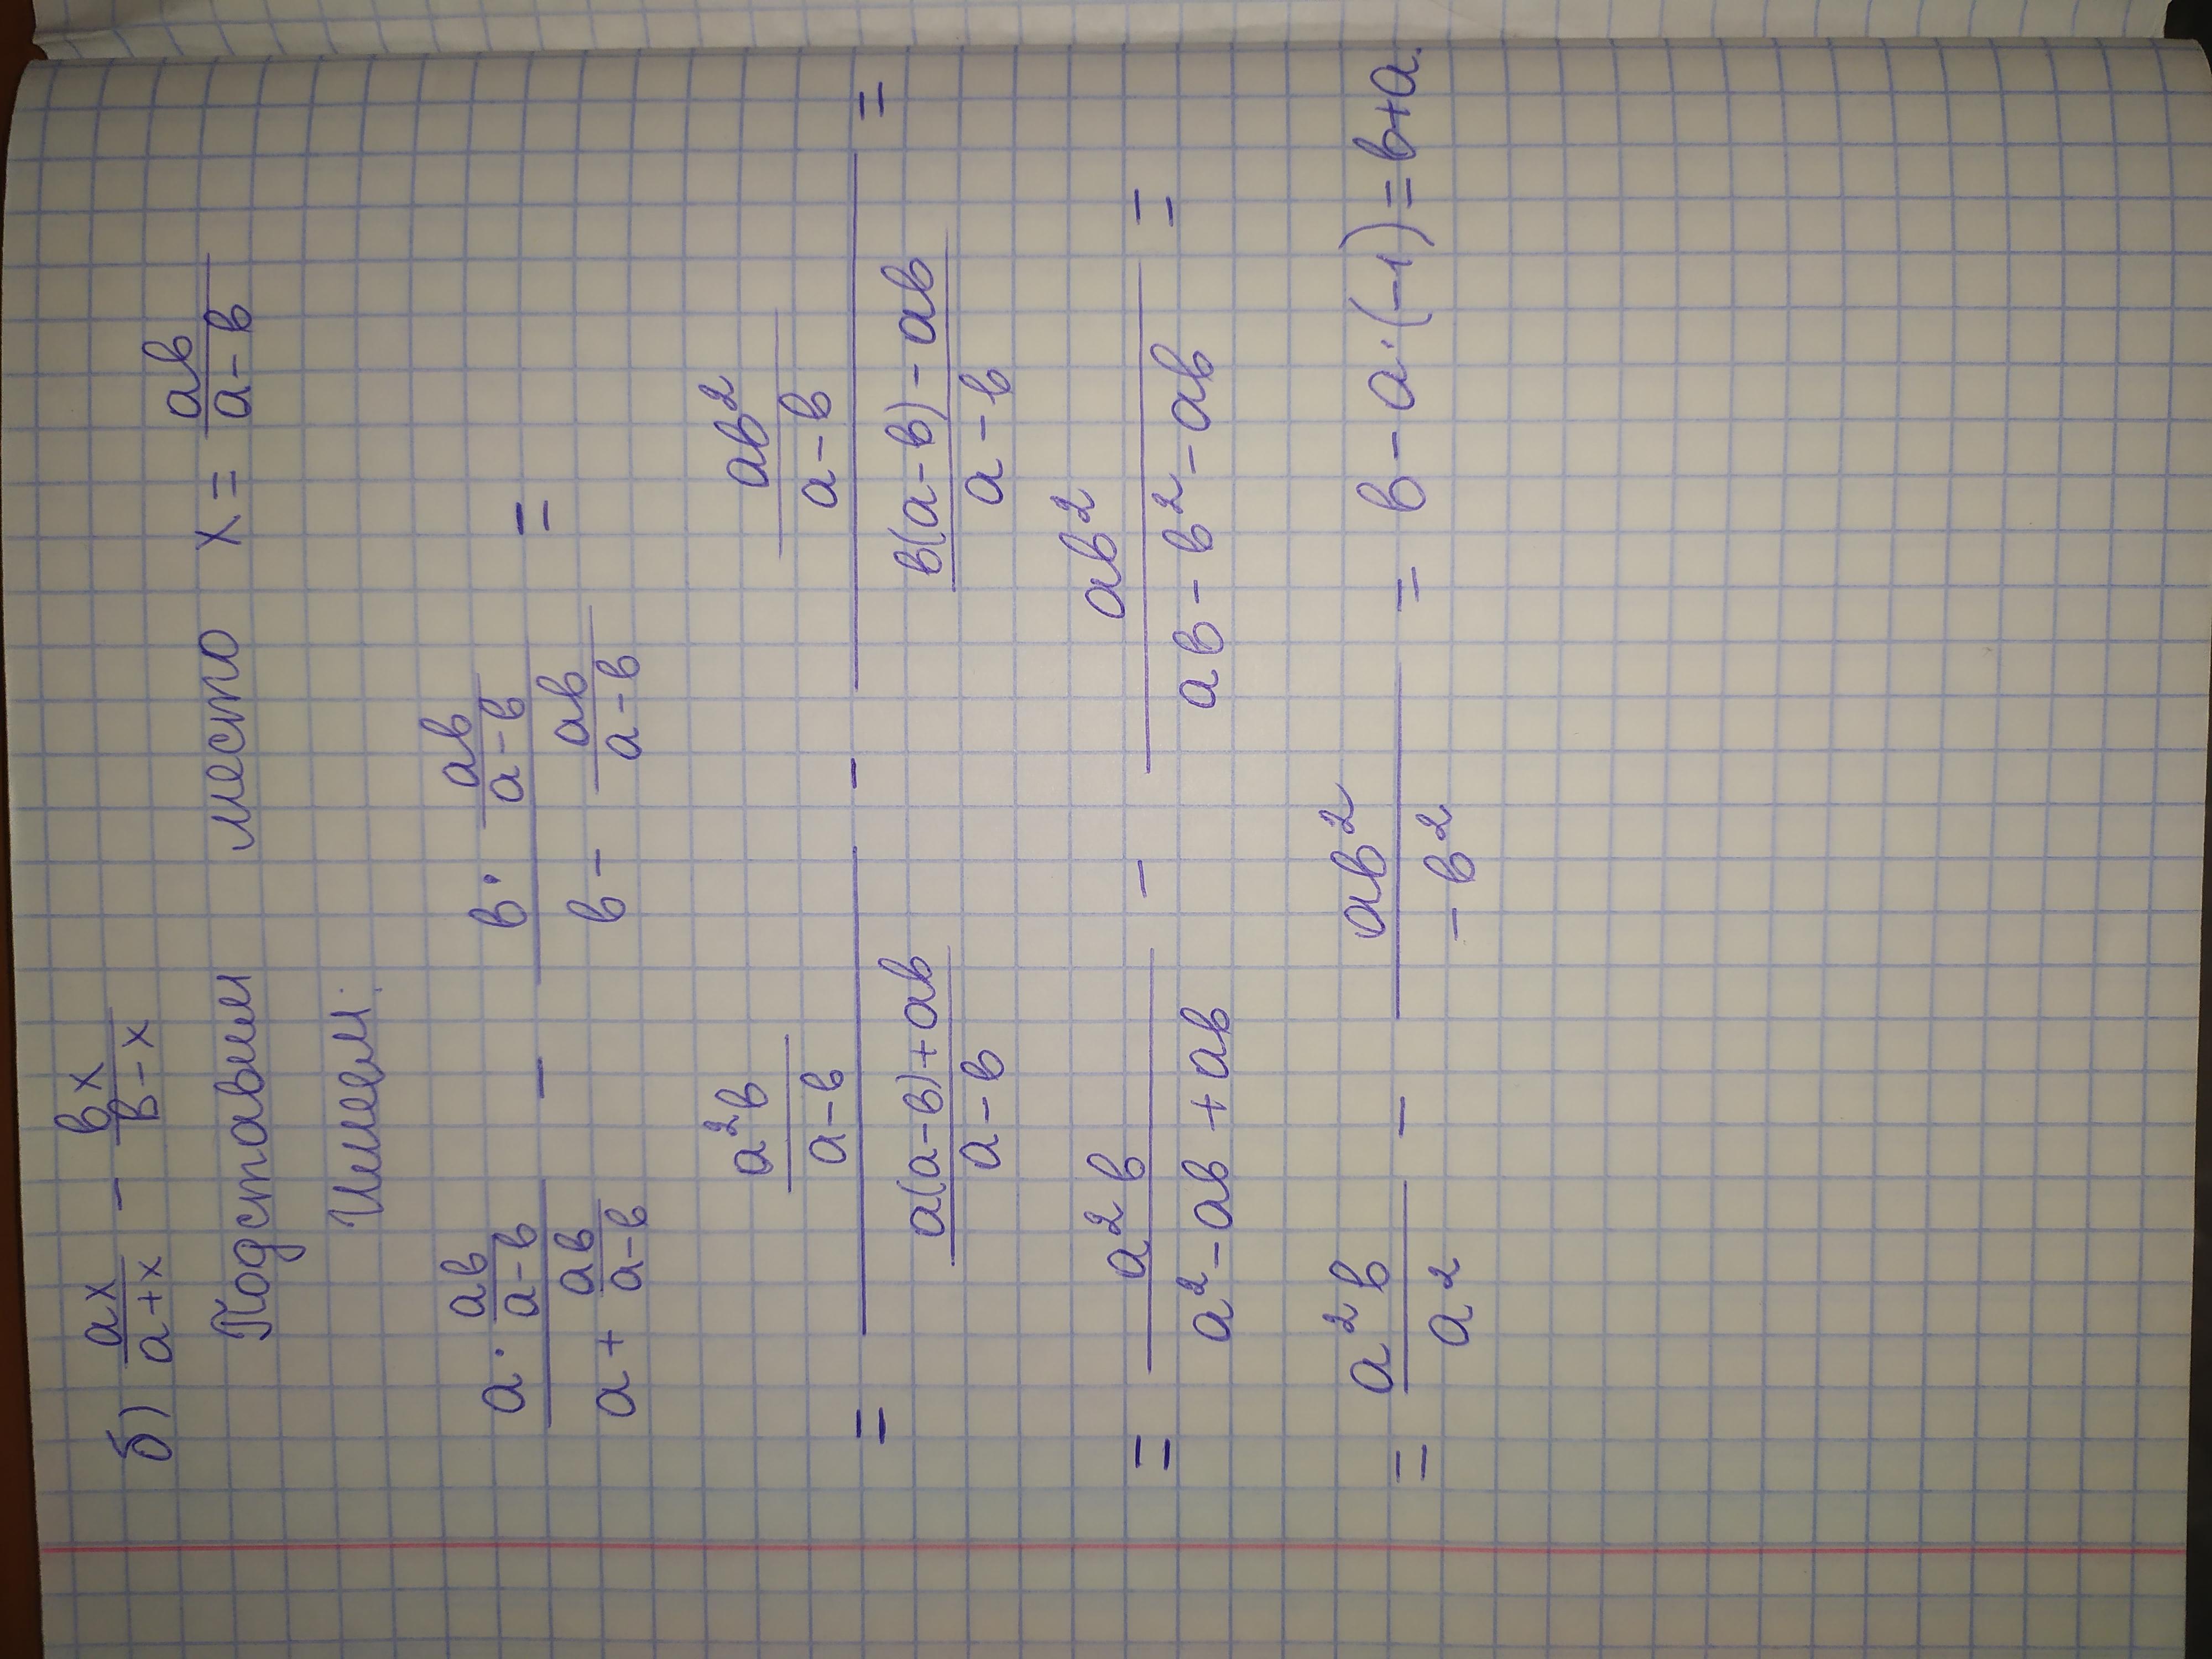 б) ax/(a+x) − bx/(b−x)
Подставим место x = ab/(a−b)
Имеем:
(a · ab/(a−b))/(a + ab/(a−b)) − (b · ab/(a−b))/(b − ab/(a−b)) =
= (a²b/(a−b))/((a(a−b)+ab)/(a−b)) − (ab²/(a−b))/((b(a−b)−ab)/(a−b)) =
= a²b/(a²−ab+ab) − ab²/(ab−b²−ab) =
= a²b/a² − ab²/(−b²) = b−a·(−1)=b+a.